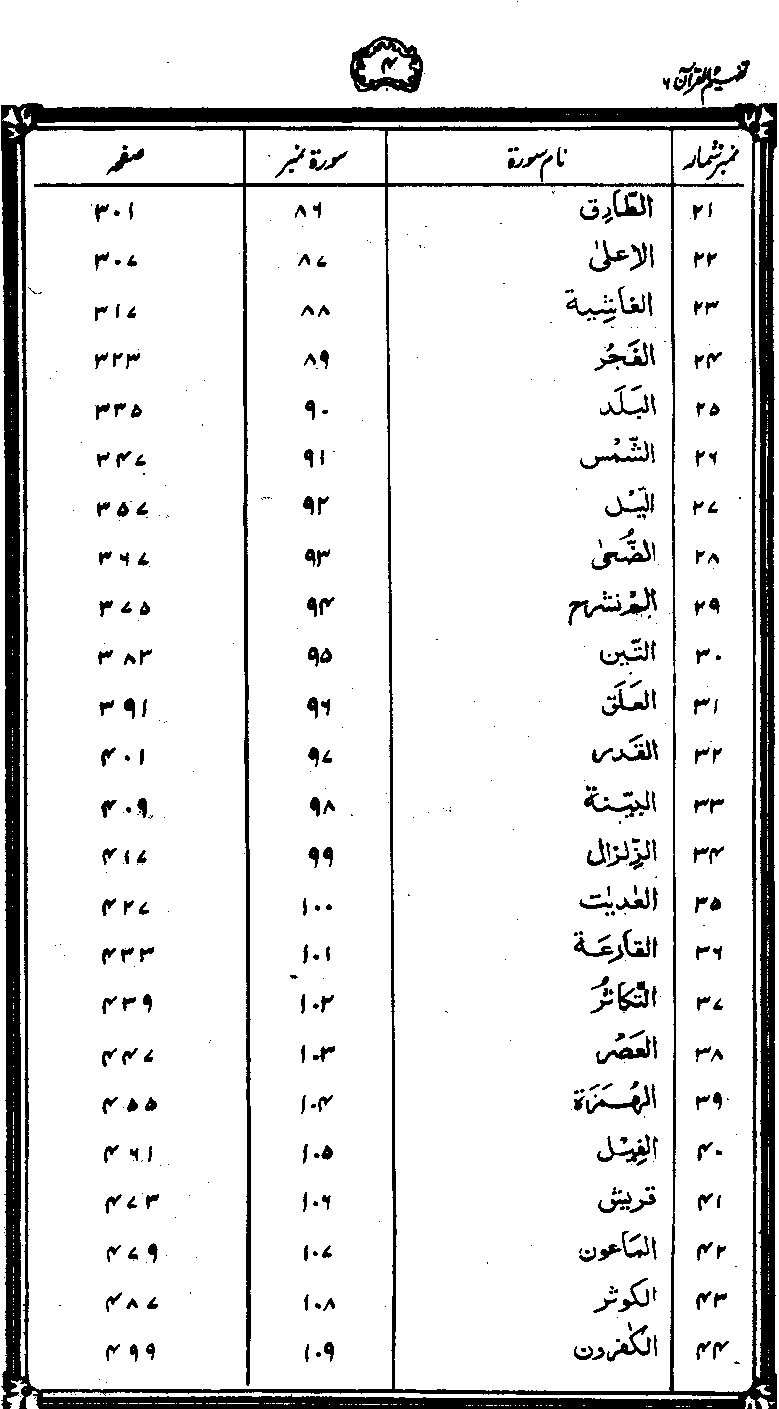 تفہیم القرآن ۶
۴
نمبر شمار نام سورۃ سورۃ نمبر صفحہ
۲۱ الطَّارِق ۸۶ ۳۰۱
۲۲ الاعلیٰ ۸۷ ۳۰۷
۲۳ الغاشِیۃ ۸۸ ۳۱۷
۲۴ الفَجُر ۸۹ ۳۲۳
۲۵ البَلَد ۹۰ ۳۳۵
۲۶ الشَّمْس ۹۱ ۳۴۷
۲۷ الیْل ۹۲ ۳۵۷
۲۸ الضُّحیٰ ۹۳ ۳۶۷
۲۹ الم نشرح ۹۴ ۳۷۵
۳۰ التّین ۹۵ ۳۸۳
۳۱ العَلَق ۹۶ ۳۹۱
۳۲ القَدر ۹۷ ۴۰۱
۳۳ البیّنۃ ۹۸ ۴۰۹
۳۴ الزِّلزال ۹۹ ۴۱۷
۳۵ العٰدیٰت ۱۰۰ ۴۲۷
۳۶ القارعَۃ ۱۰۱ ۴۳۳
۳۷ التَّکاثُر ۱۰۲ ۴۳۹
۳۸ العَصْر ۱۰۳ ۴۴۷
۳۹ الہُمَزَۃ ۱۰۴ ۴۵۵
۴۰ الفِیْل ۱۰۵ ۴۶۱
۴۱ قریش ۱۰۶ ۴۷۳
۴۲ المَاعون ۱۰۷ ۴۷۹
۴۳ الکوثر ۱۰۸ ۴۸۷
۴۴ الکٰفرون ۱۰۹ ۴۹۹